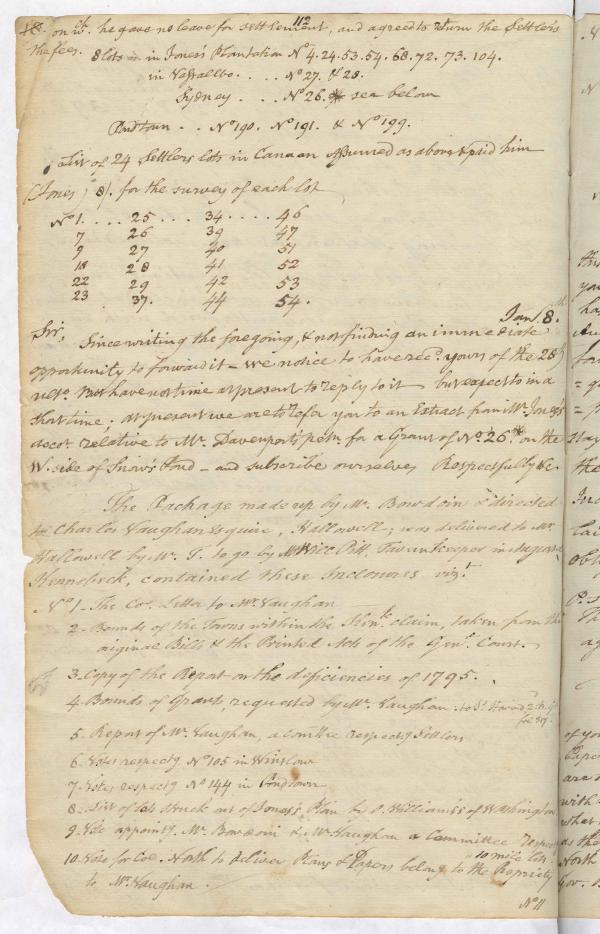 112
18. on wh. he gave no leave for settlement, and agreed to return the settlers
the fees. 8 lots in Jones's Plantation No 4. 24. 53. 54. 68. 72. 73. 104.
in Vassalbo. . . . No 27. & 28.
Sydney . . . . No 26. * see below
Pondtown . . No 190. No 191. & No 199.
List of 24 Settlers lots in Canaan Assumed as above & paid him
(Jones) 8/. for the survey of each lot
No 1. . . . 25 . . . . 34 . . . . 46
7 26 39 47
9 27 40 51
18 28 41 52
22 29 42 53
23 37. 44 54.
Jany 8th
Sir, Since writing the foregoing, & not finding an immediate
opportunity to forward it – we notice to have recd. yours of the 28th
ulto. But have not time at present to reply to it – but expect to in a
short time; at present we are to refer you to an Extract from Mr Jones's
accot. relative to Mr. Davenport's petn. for a Grant of No. 26* on the
W. side of Snow's Pond – and subscribe ourselves Respectfully &c.
The Package made up by Mr. Bowdoin & directed
to Charles Vaughan Esquire, Hallowell; was delivered to Mr.
Hallowell by Mr. T. to go by Pitt Tavernkeeper in Augusta
Kennebeck, contained these Inclosures vizt.
No 1 – The Coe. Letter to Mr Vaughan
2 – Bounds of the Towns within the Kenk. claim, taken from the
original Bills & the Printed Acts of the Genl. Court.
3 – Copy of the Report on the deficiencies of 1795.
4 – Bounds of Grants, requested by Mr. Vaughan
5 – Report of Mr. Vaughan, a comttee respectg Settlers
6 – Votes respectg No 105 in Winslow
7 – Votes respectg No 144 in Pondtown
8 – List of lots struck out of Jones's Plan by O. Williams's of Washington
9 – Vote appointg Mr. Bowdoin & Mr. Vaughan a Committee respectg
10 mile lots.
10 – Vote for Coe. North to deliver Plans & Papers belong to the Propriety
to Mr. Vaughan.
No 11